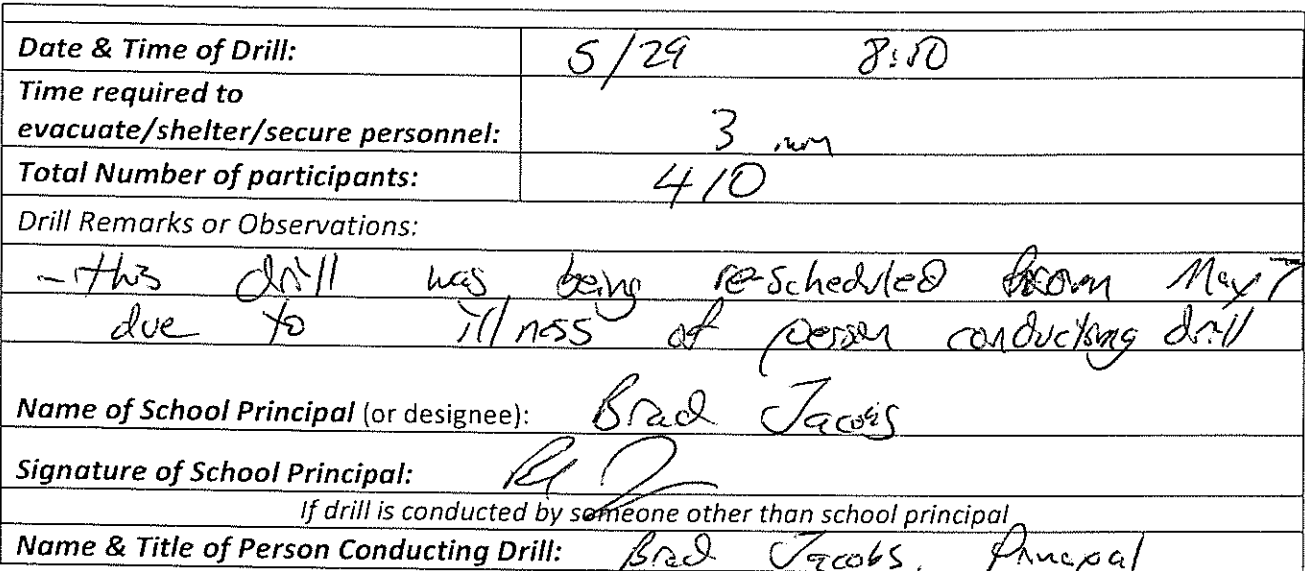 Date & Time of Drill: 5/29 8:50
Time required to
evacuate/shelter/secure personnel: 3 min
Total Number of participants: 410
Drill Remarks or Observations:
- this drill was being re-scheduled from May 7
due to illness of person conducting drill
Name of School Principal (or designee): Brad Jacobs
Signature of School Principal:
If drill is conducted by someone other than school principal
Name & Title of Person Conducting Drill: Brad Jacobs, Principal